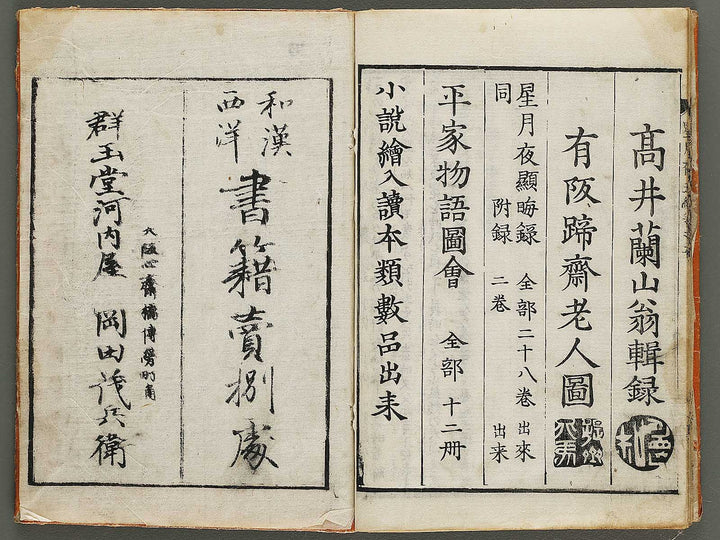 高井蘭山翁輯録
有阪蹄齋老人圖
星月夜顯晦録 全部二十八巻 出來
同 附録 二巻 出来
平家物語圖會 全部 十二册
小説繪入讀本類數品出来
和漢
西洋
書籍賣捌處
大阪心斎橋博労町角
群玉堂河内屋 岡田茂兵衛